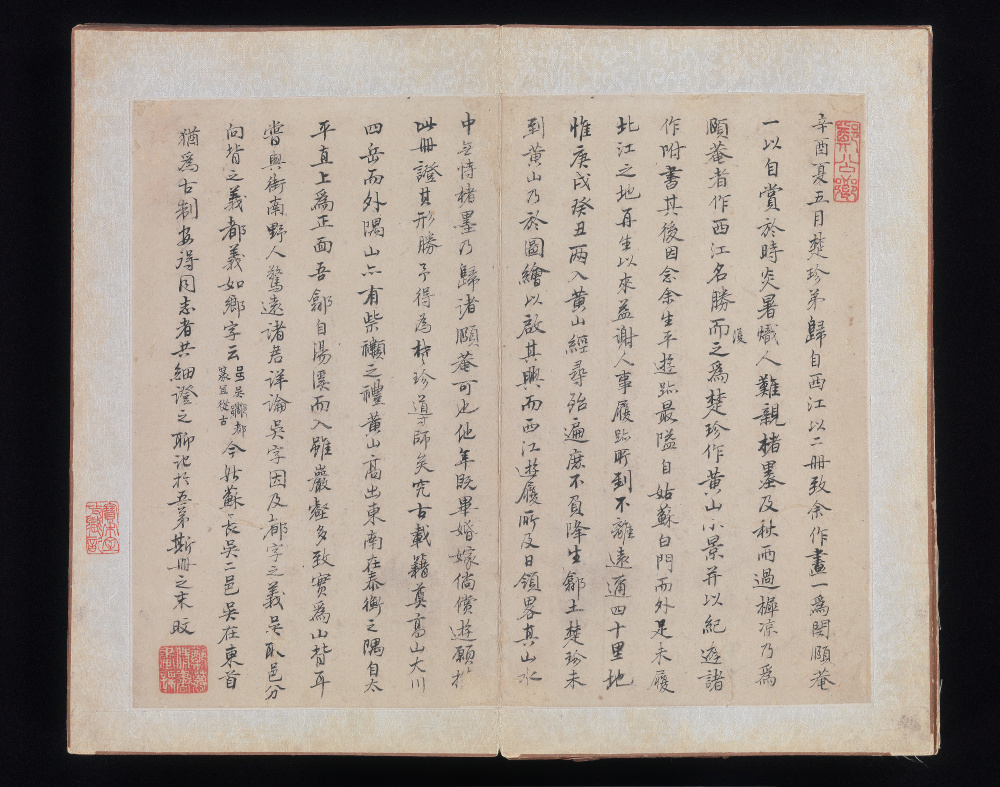 辛酉夏五月楚珍弟歸自西江以二冊致余作畫一為閔頤菴
一以自賞於時炎暑幟人難親楮墨及秋雨過極凉乃為
頤菴者作西江名勝而之為楚珍作黃山小景并以紀遊諸
復
作附書其後因念余生平遊跡最隘自姑蘇白門而外足未履
北江之地再生以來益謝人事履跡所到不離遠適四十里地
惟庚戌癸丑兩入黃山經尋殆遍庶不負降生鄒土楚珍未
到黃山乃於圖繪以啟其興而西江遊履所及日領畧其山水
中無恃楮墨乃歸諸頤菴可也他年既畢婚嫁倘償遊願於
此冊證其形勝予得為楚珍導師矣究古載籍奠高山大川
四岳而外隅山亦有柴禷之禮黃山高出東南在泰衡之隅自太
平直上為正面吾鄒自湯溪而入雖巖壑多致實為山背耳
嘗與街南野人驚遠諸君詳論吳字因及都字之義吳取邑分
向背之義都義如鄉字云
今姑蘇長吳二邑吳在東首
猶為古制安得同志者共細證之聊記於五弟斯冊之末旼